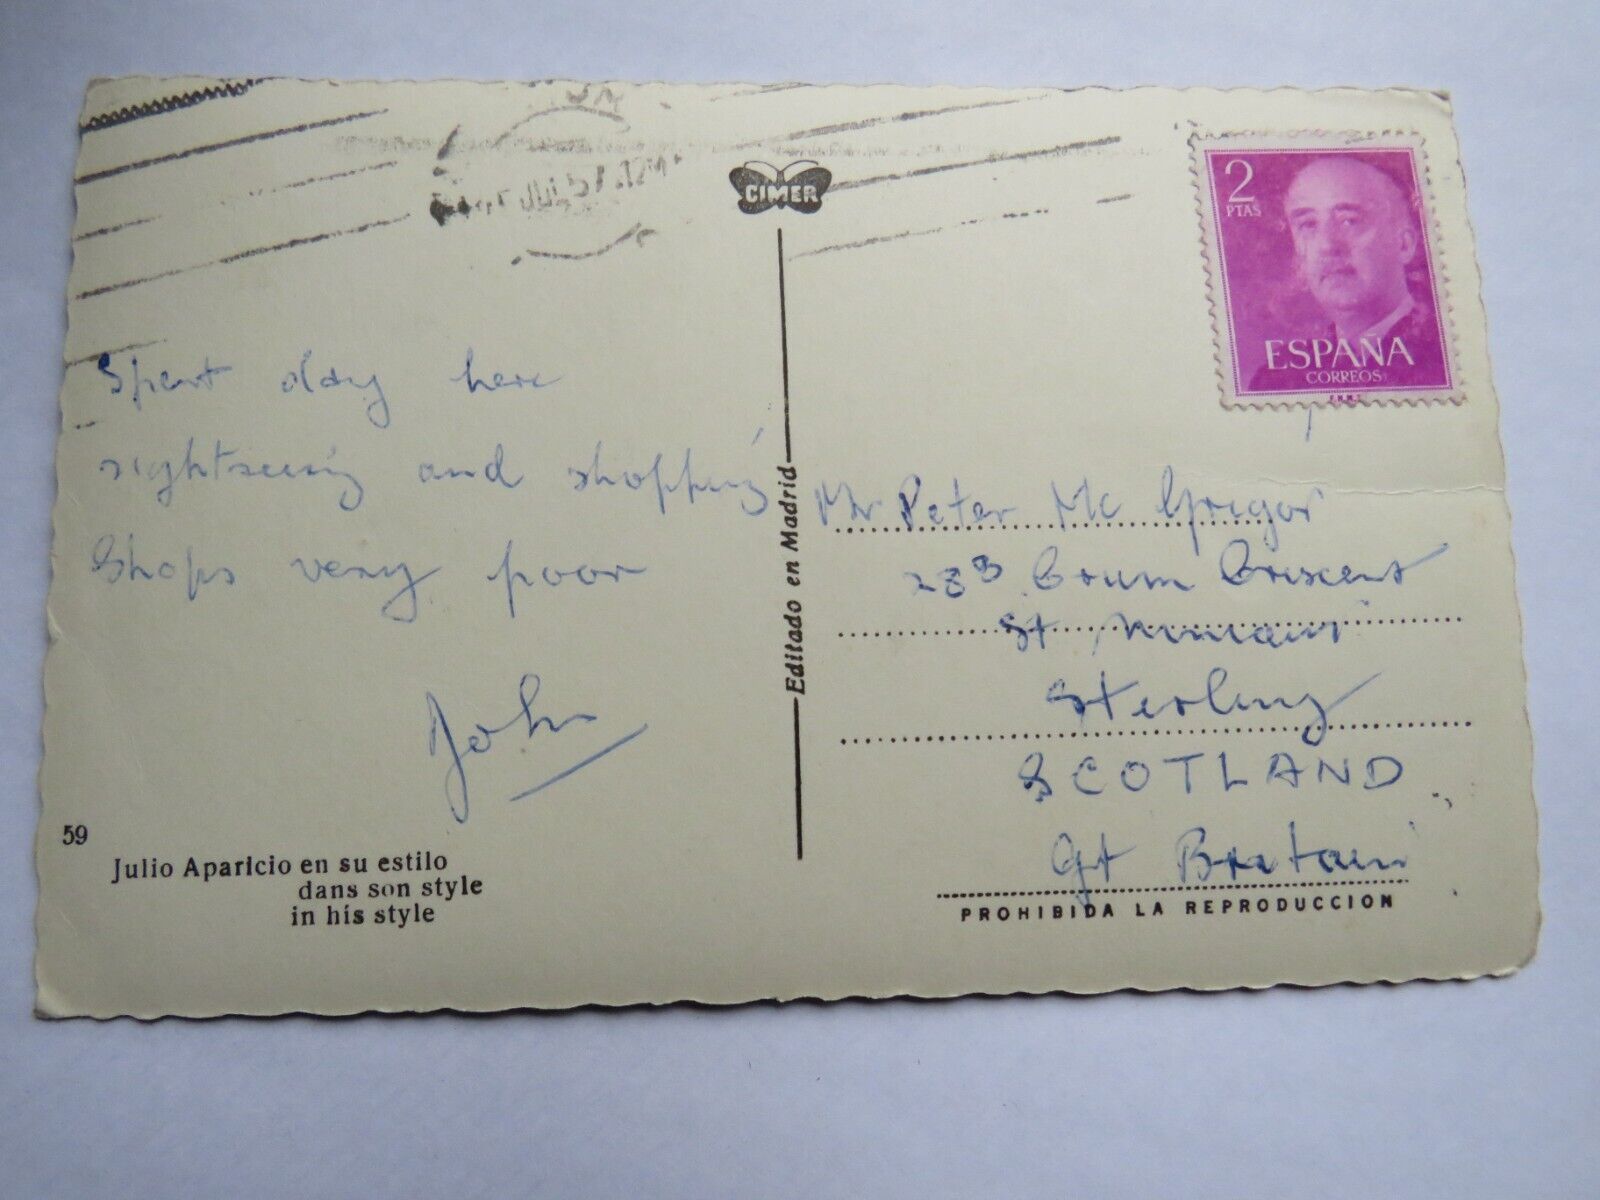 JUL 57.12M
CIMER
2
PTAS
ESPAÑA
CORREOS
F.N.M.T.
Spent day here
sightseeing and shopping
Shops very poor
John
Editado en Madrid
Mr Peter Mc Gregor
Crescent
St Ninians
Sterling
SCOTLAND
Gt Britain
59
Julio Aparicio en su estilo
dans son style
in his style
PROHIBIDA LA REPRODUCCION